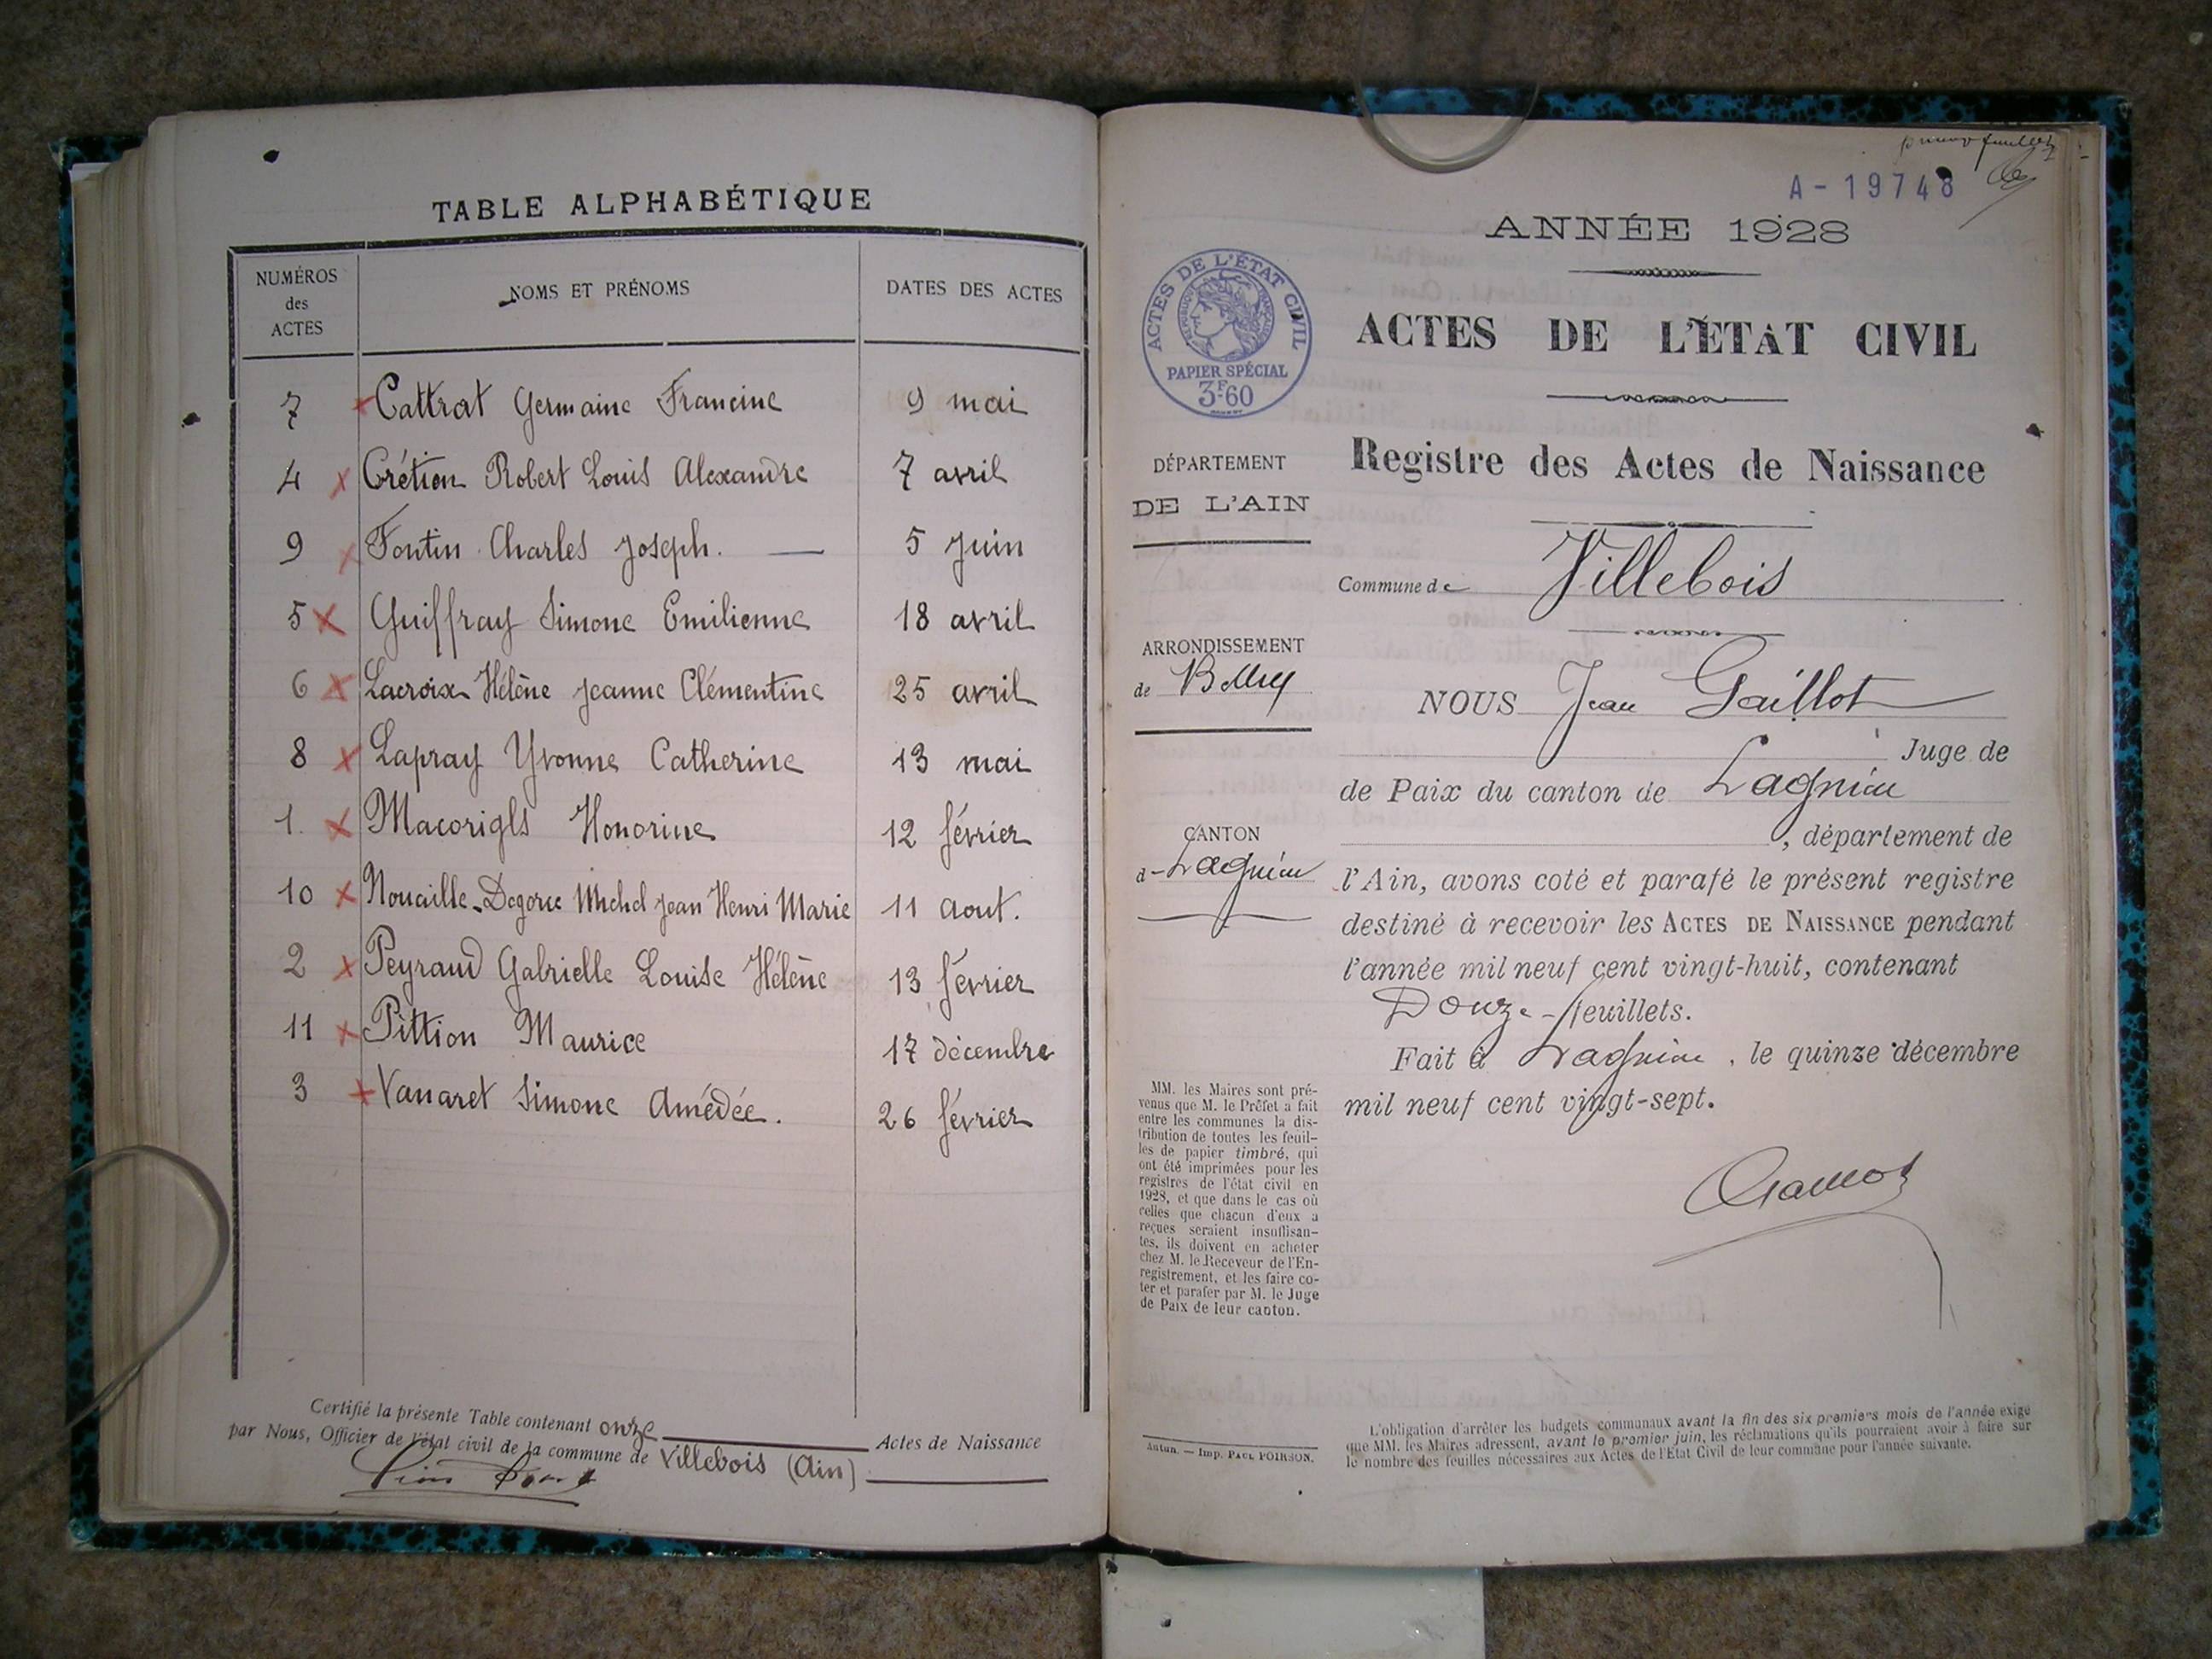 TABLE ALPHABÉTIQUE
NUMÉROS
des
ACTES
NOMS ET PRÉNOMS
DATES DES ACTES
7 Cattrat Germaine Francine 9 mai
4 Crétien Robert Louis Alexandre 7 avril
9 Fontin Charles Joseph. 5 Juin
5 Guiffray Simone Emilienne 18 avril
6 Lacroix Hélène Jeanne Clémentine 25 avril
8 Lapray Yvonne Catherine 13 mai
1. Macorigls Honorine 12 février
10 Nouaille-Degorce Michel Jean Henri Marie 11 Aout.
2 Peyraud Gabrielle Louise Hélène 13 février
11 Pittion Maurice 17 décembre
3 Vanaret Simone Amédée. 26 février
Certifié la présente Table contenant onze Actes de Naissance
par Nous, Officier de l'état civil de la commune de Villebois (Ain)
A-19748
ANNÉE 1928
ACTES DE L'ÉTAT CIVIL
RÉPUBLIQUE FRANÇAISE
PAPIER SPÉCIAL
3F60
ACTES DE L'ÉTAT CIVIL
Registre des Actes de Naissance
DÉPARTEMENT
DE L'AIN
Commune de Villebois
ARRONDISSEMENT
de Belley
NOUS Jean Gaillot
Juge de
de Paix du canton de Lagnieu
CANTON
d- Lagnieu
, département de
l'Ain, avons coté et parafé le présent registre
destiné à recevoir les ACTES DE NAISSANCE pendant
l'année mil neuf cent vingt-huit, contenant
Douze feuillets.
Fait à Lagnieu, le quinze décembre
mil neuf cent vingt-sept.
MM. les Maires sont pré-
venus que M. le Préfet a fait
entre les communes la dis-
tribution de toutes les feuil-
les de papier timbré, qui
ont été imprimées pour les
registres de l'état civil en
1928, et que dans le cas où
celles que chacun d'eux a
reçues seraient insuffisan-
tes, ils doivent en acheter
chez M. le Receveur de l'En-
registrement, et les faire co-
ter et parafer par M. le Juge
de Paix de leur canton.
Autun. — Imp. PAUL POIRSON.
L'obligation d'arrêter les budgets communaux avant la fin des six premiers mois de l'année exige
que MM. les Maires adressent, avant le premier juin, les réclamations qu'ils pourraient avoir à faire sur
le nombre des feuilles nécessaires aux Actes de l'Etat Civil de leur commune pour l'année suivante.